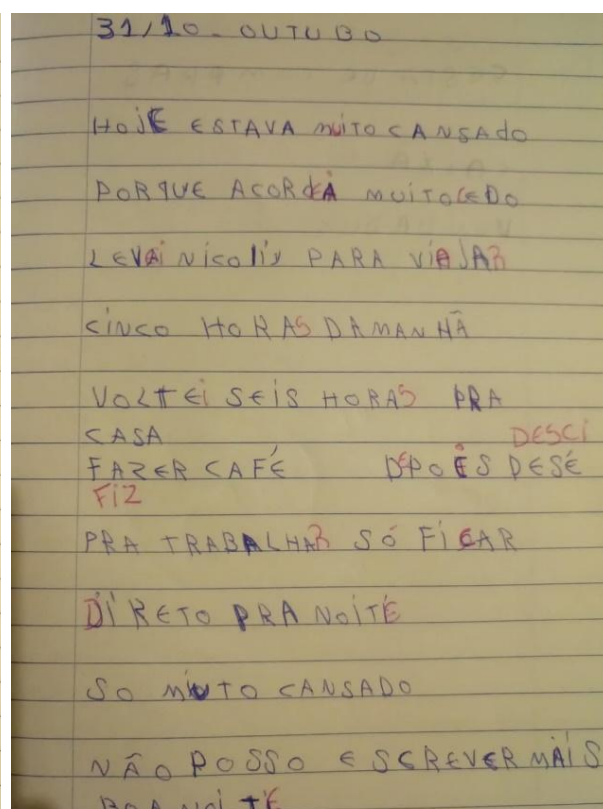 31/10 - OUTUBO
HOJE ESTAVA MUITO CANSADO
PORQUE ACORDEI MUITO CEDO
LEVEI NICOLIS PARA VIAJAR
CINCO HORAS DA MANHÃ
VOLTEI SEIS HORAS PRA
CASA DESCI
FAZER CAFÉ DEPOIS DESÉ
FIZ
PRA TRABALHAR SÓ FICAR
DIRETO PRA NOITE
SO MUTO CANSADO
NÃO POSSO ESCREVER MAIS
BOA NOITE